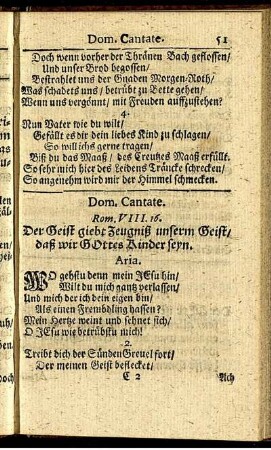 Dom. Cantate. 51
Doch wenn vorher der Thränen Bach geflossen/
Und unser Brod begossen/
Bestrahlet uns der Gnaden Morgen-Roth/
Was schadets uns/ betrübt zu Bette gehen/
Wenn uns vergönnt/ mit Freuden auffzustehen?
4.
Nun Vater wie du wilt/
Gefällt es dir dein liebes Kind zu schlagen/
So will ichs gerne tragen/
Biß du das Maaß/ des Creutzes Maaß erfüllt.
So sehr mich hier des Leidens Träncke schrecken/
So angenehm wird mir der Himmel schmecken.
Dom. Cantate.
Rom. VIII. 16.
Der Geist giebt Zeugniß unserm Geist/
daß wir GOttes Kinder seyn.
Aria.
WO gehstu denn mein JEsu hin/
Wilt du mich gantz verlassen/
Und mich der ich dein eigen bin/
Als einen Frembdling hassen?
Mein Hertze weint und sehnet sich/
O JEsu wie betrübstu mich!
2.
Treibt dich der Sünden Greuel fort/
Der meinen Geist beflecket/
E 2 Ach